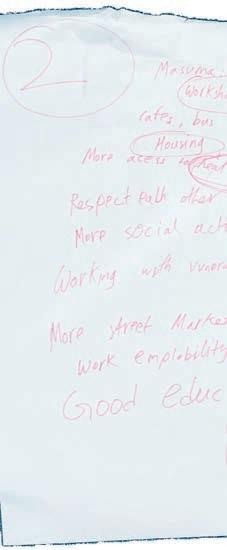 2
Masuma:
Worksh
rates, bus
Housing
More acess to heal
Respect eath other
More social act
Working with vunera
More street Marke
work emplobility
Good educ